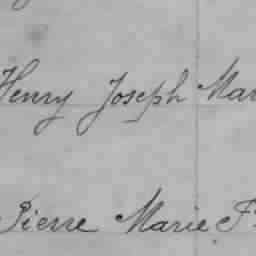 Henry Joseph Mar
Pierre Marie F